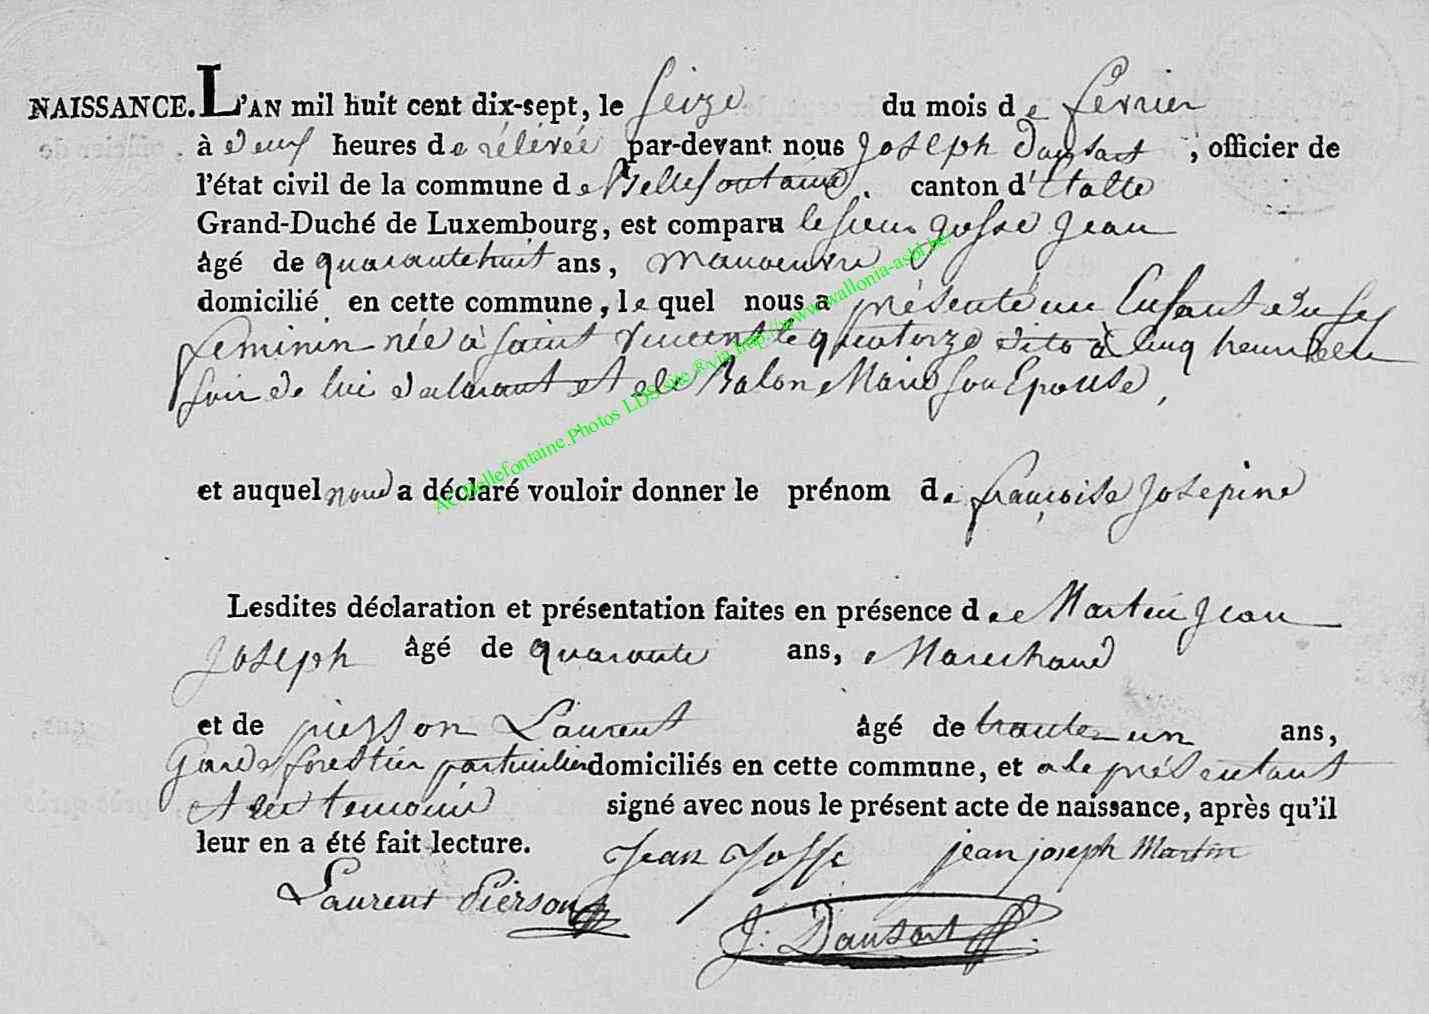 NAISSANCE. L'AN mil huit cent dix-sept, le seize du mois de fevrier
à deux heures de rélévée par-devant nous Joseph Dausart, officier de
l'état civil de la commune de Bellefontaine, canton d'Etalle
Grand-Duché de Luxembourg, est comparu le sieur Josse Jean
âgé de quarantehuit ans, manoeuvre
domicilié en cette commune, le quel nous a présenté un Enfant du sex
feminin née à saint Vincent le quatorze dito à cinq heures du
soir de lui déclarant et de Balon Marie son Epouse,
et auquel nous a déclaré vouloir donner le prénom de françoise Josepine
Lesdites déclaration et présentation faites en présence de Martin Jean
Joseph âgé de quarante ans, Marechand
et de pierson Laurent âgé de trante un ans,
Garde forestier particulier domiciliés en cette commune, et a le présentant
et ses temoins signé avec nous le présent acte de naissance, après qu'il
leur en a été fait lecture. Jean Josse jean joseph Martin
Laurent Pierson J. Dausart
Ac Bellefontaine Photos LDS site ®via http://www.wallonia-asbl.be/